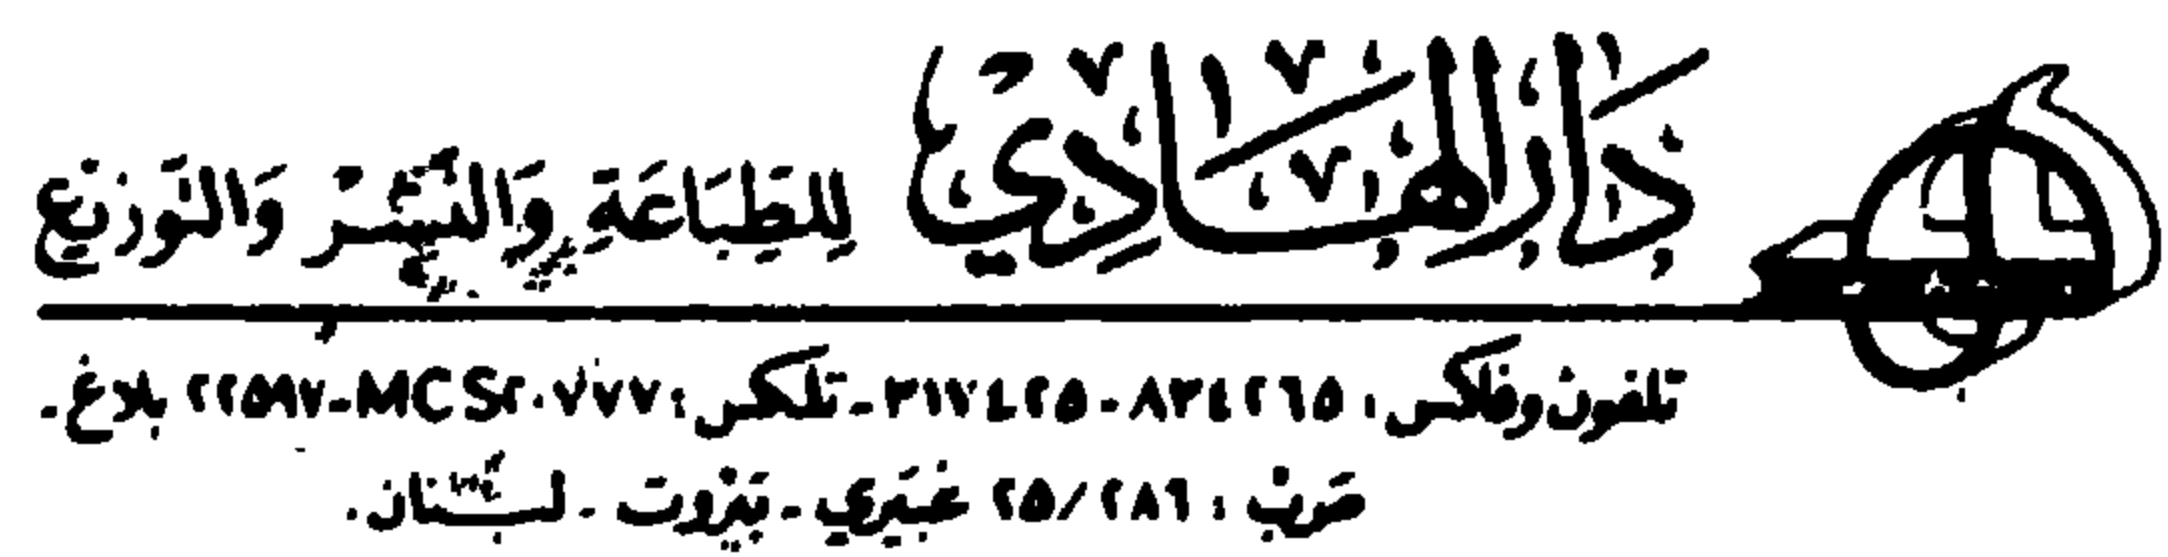 دَارُ الهَادِي
لِلطِّبَاعَةِ وَالنَّشْرِ وَالتَّوزيْع
تلفون وفاكس : ٨٣٤٢٦٥ - ٣١٧٤٢٥ - تلكس : MCS٢٠٧٧٧ - ٢٢٥٩٧ بلاغ -
صَ‍ربْ : ٢٨٦ / ٢٥ غبَيري - بَيْروت - لبْنان .